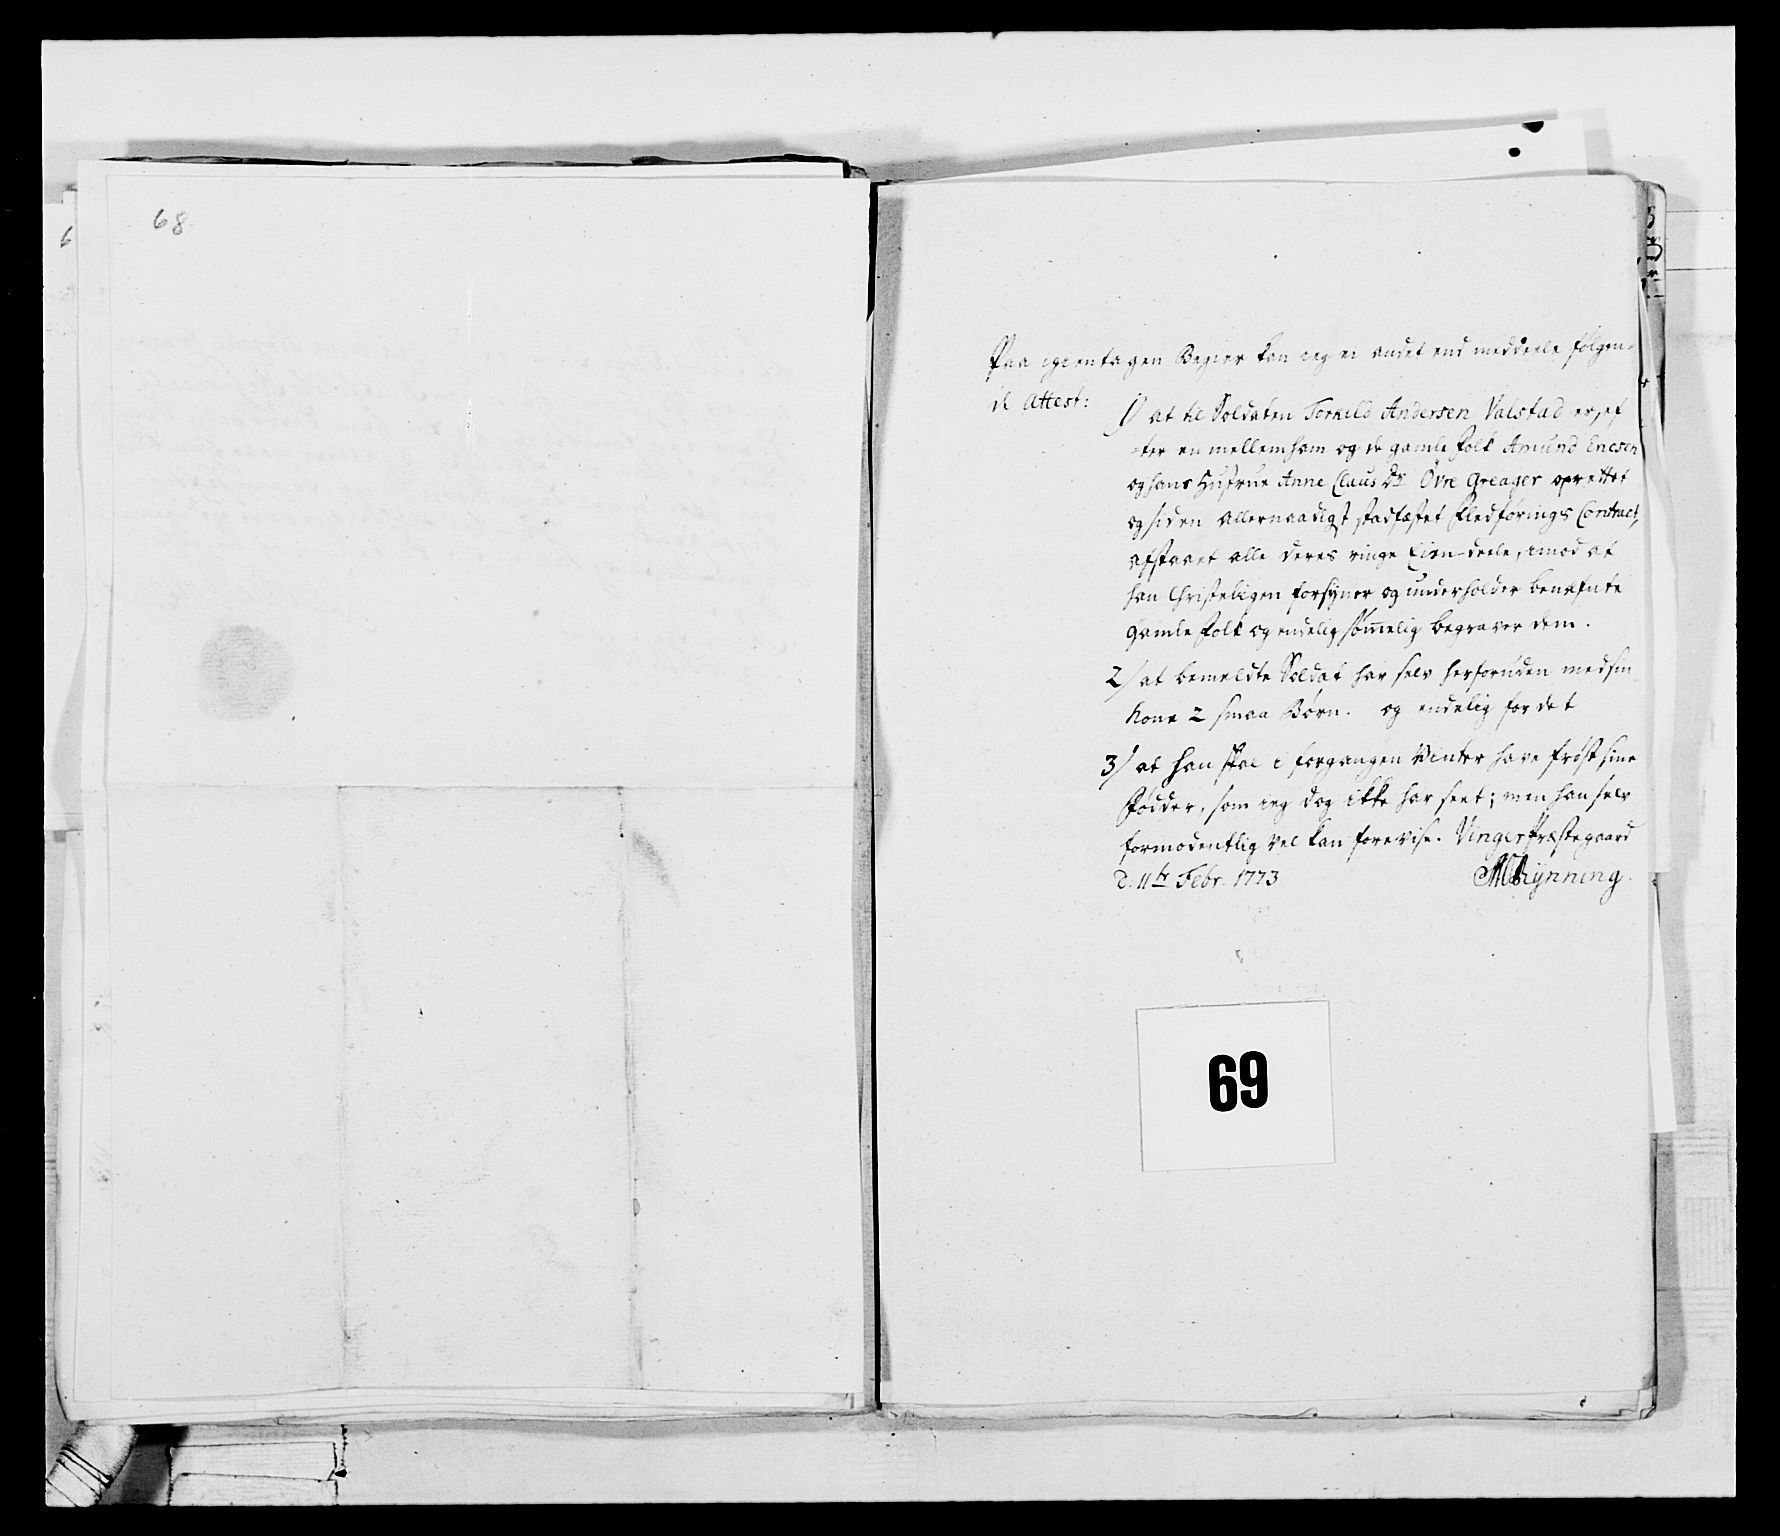 68
Paa igientagen Begier kan ieg ei andet end meddeele følgen-
de Attest:
1) at til Soldaten Torkild Andersen Valstad er, ef
-ter en mellem ham og de gamle Folk Amund Ericsen
og hans Hustrue Anne Claus Dr Övre Greager oprettet
og siden allernaadigst stadfæstet Fledførings Contract,
afstaaet alle deres ringe Eien-deele, imod at
han Christeligen forsyner og underholder benæfnte
gamle Folk og endelig sømmelig begraver dem.
2) at bemeldte Soldat har selv herforuden med sin
Kone 2 smaa Børn. og endelig for det
3) at han skal i forgangen Vinter have frøst sine
Fødder, som ieg dog ikke har seet; men han selv
formodentlig vel kan forevise. Vinger Præstegaard
d. 11te Febr. 1773
Mynning.
69